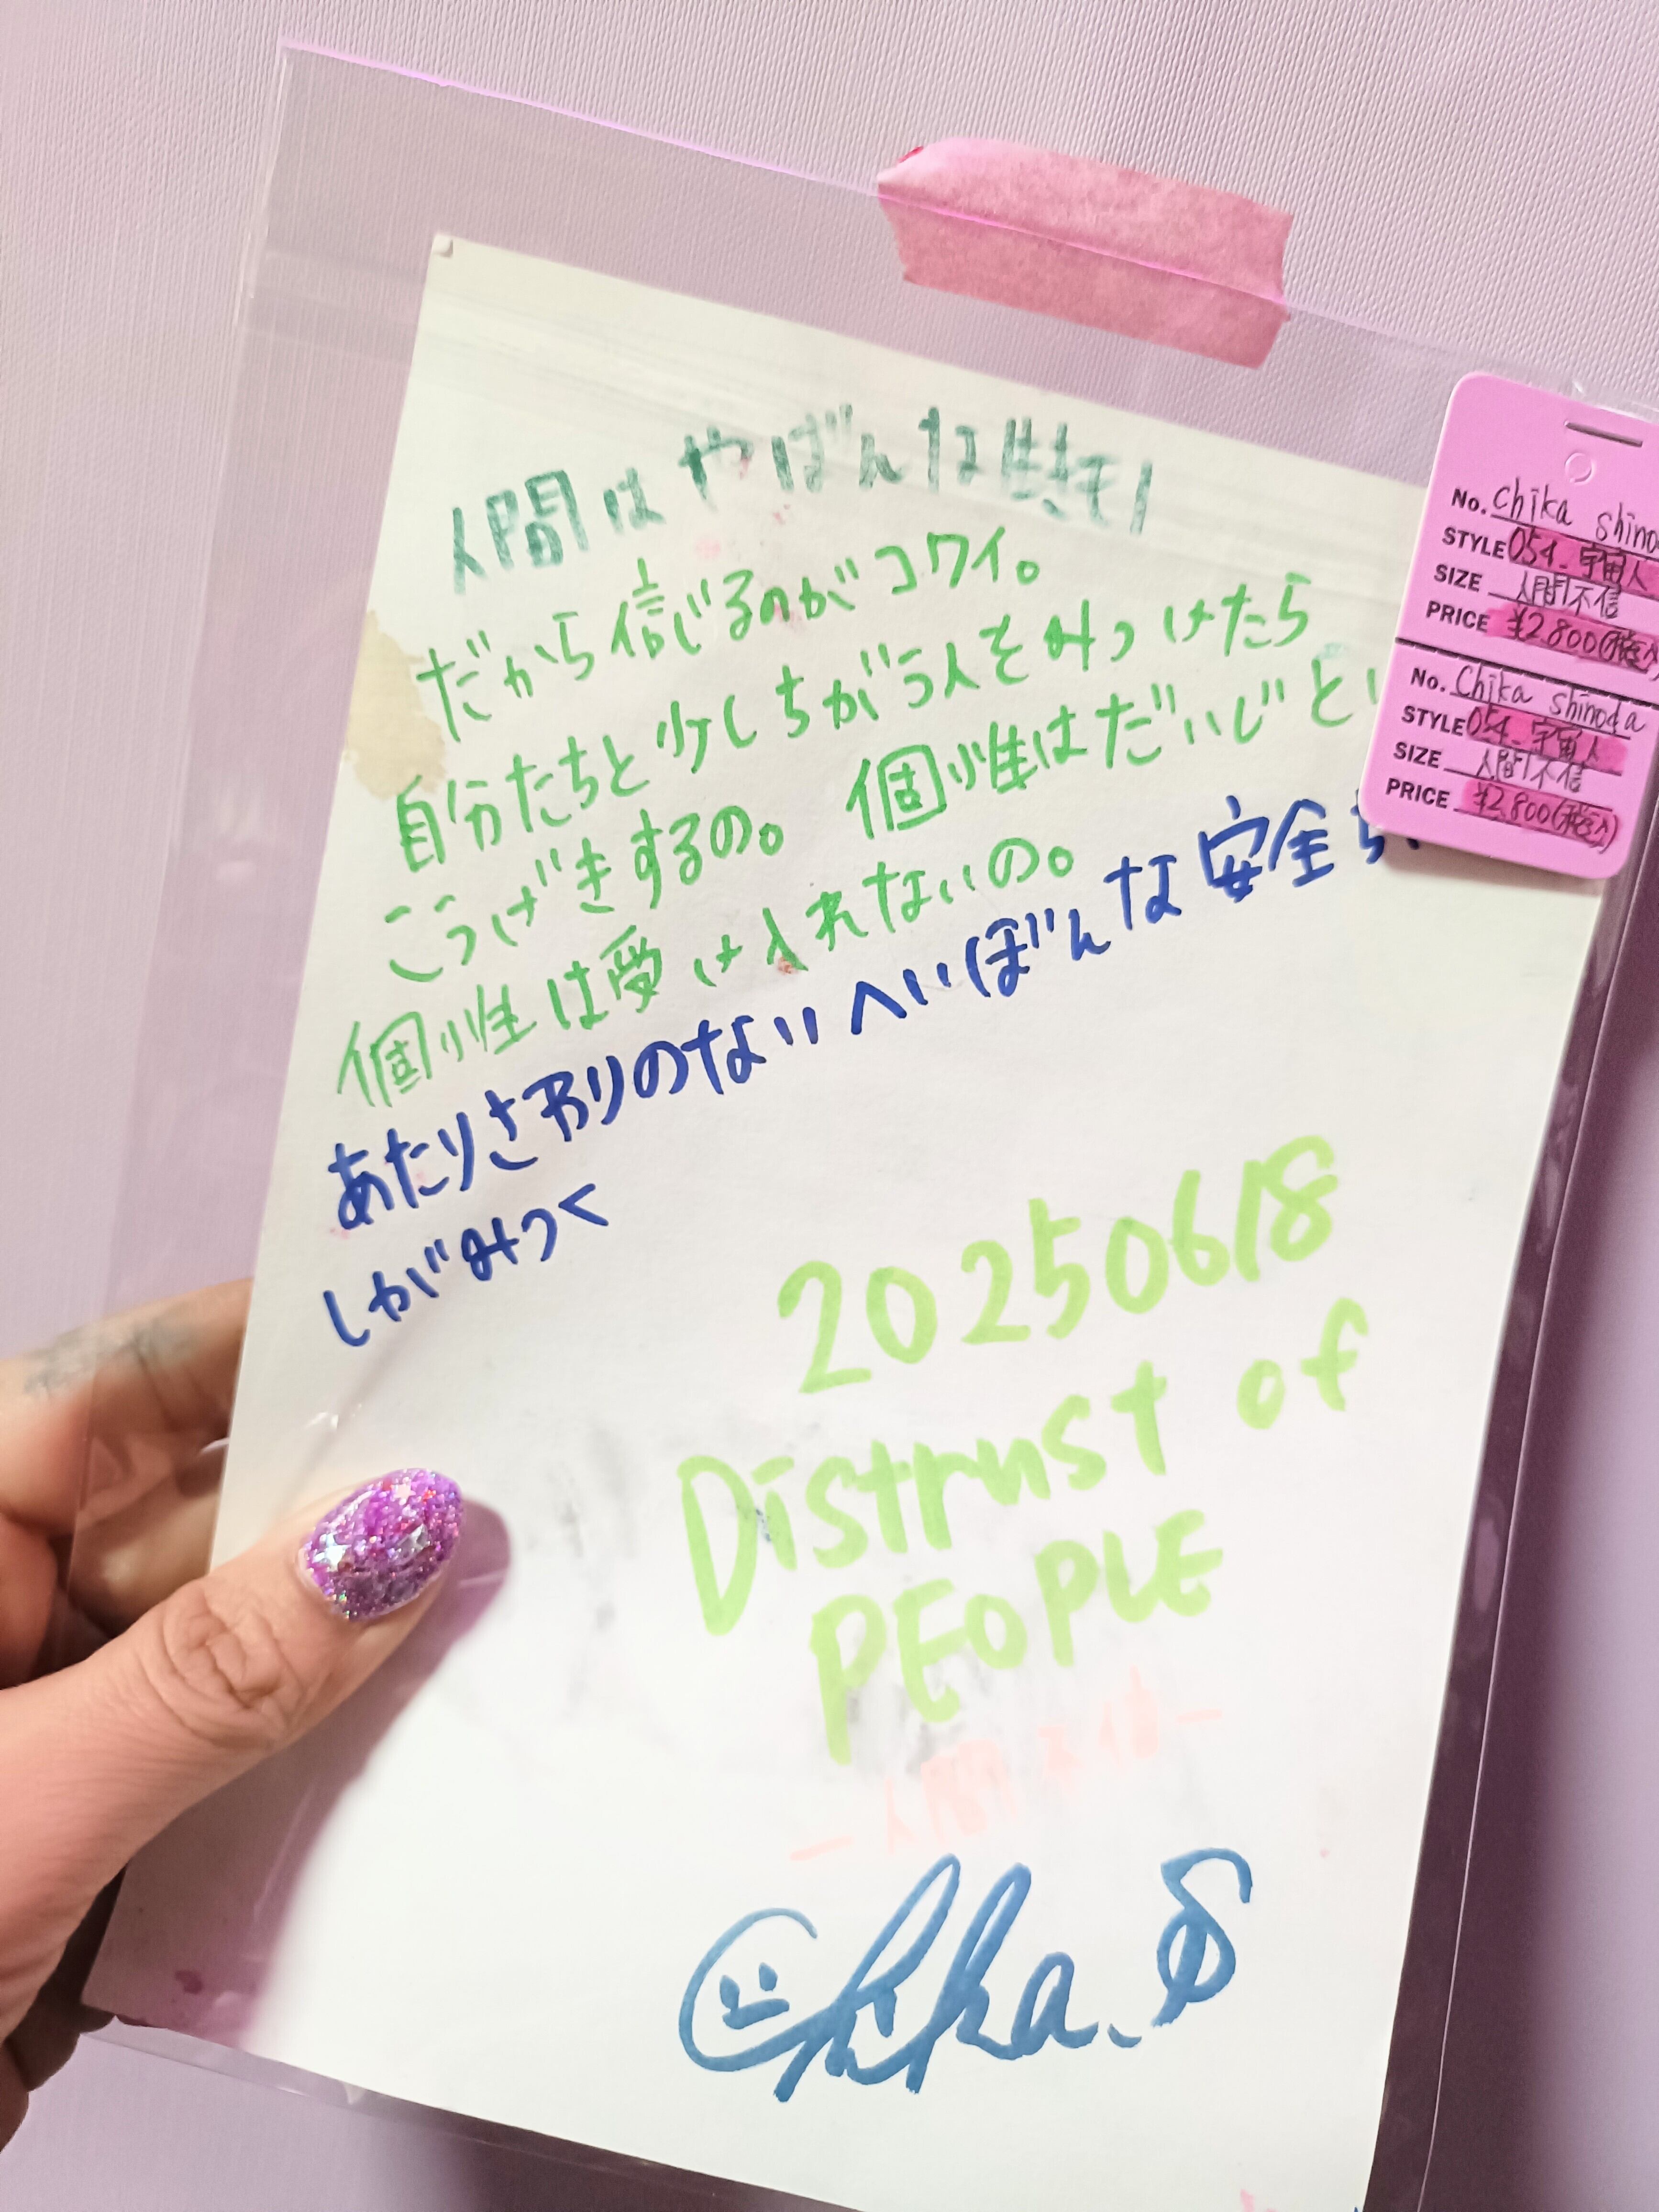 人間はやばんな生きモノ
だから信じるのがコワイ。
自分たちと少しちがう人をみつけたら
こうげきするの。個性はだいじとい
個性は受け入れないの。
あたりさわりのないへいぼんな安全
しがみつく
20250618
Distrust of
PEOPLE
ー人間不信ー
Chika.S
No. Chika Shino
STYLE 054_宇宙人
SIZE 人間不信
PRICE ¥2800(税込)
No. Chika Shinoda
STYLE 054_宇宙人
SIZE 人間不信
PRICE ¥2,800(税込)